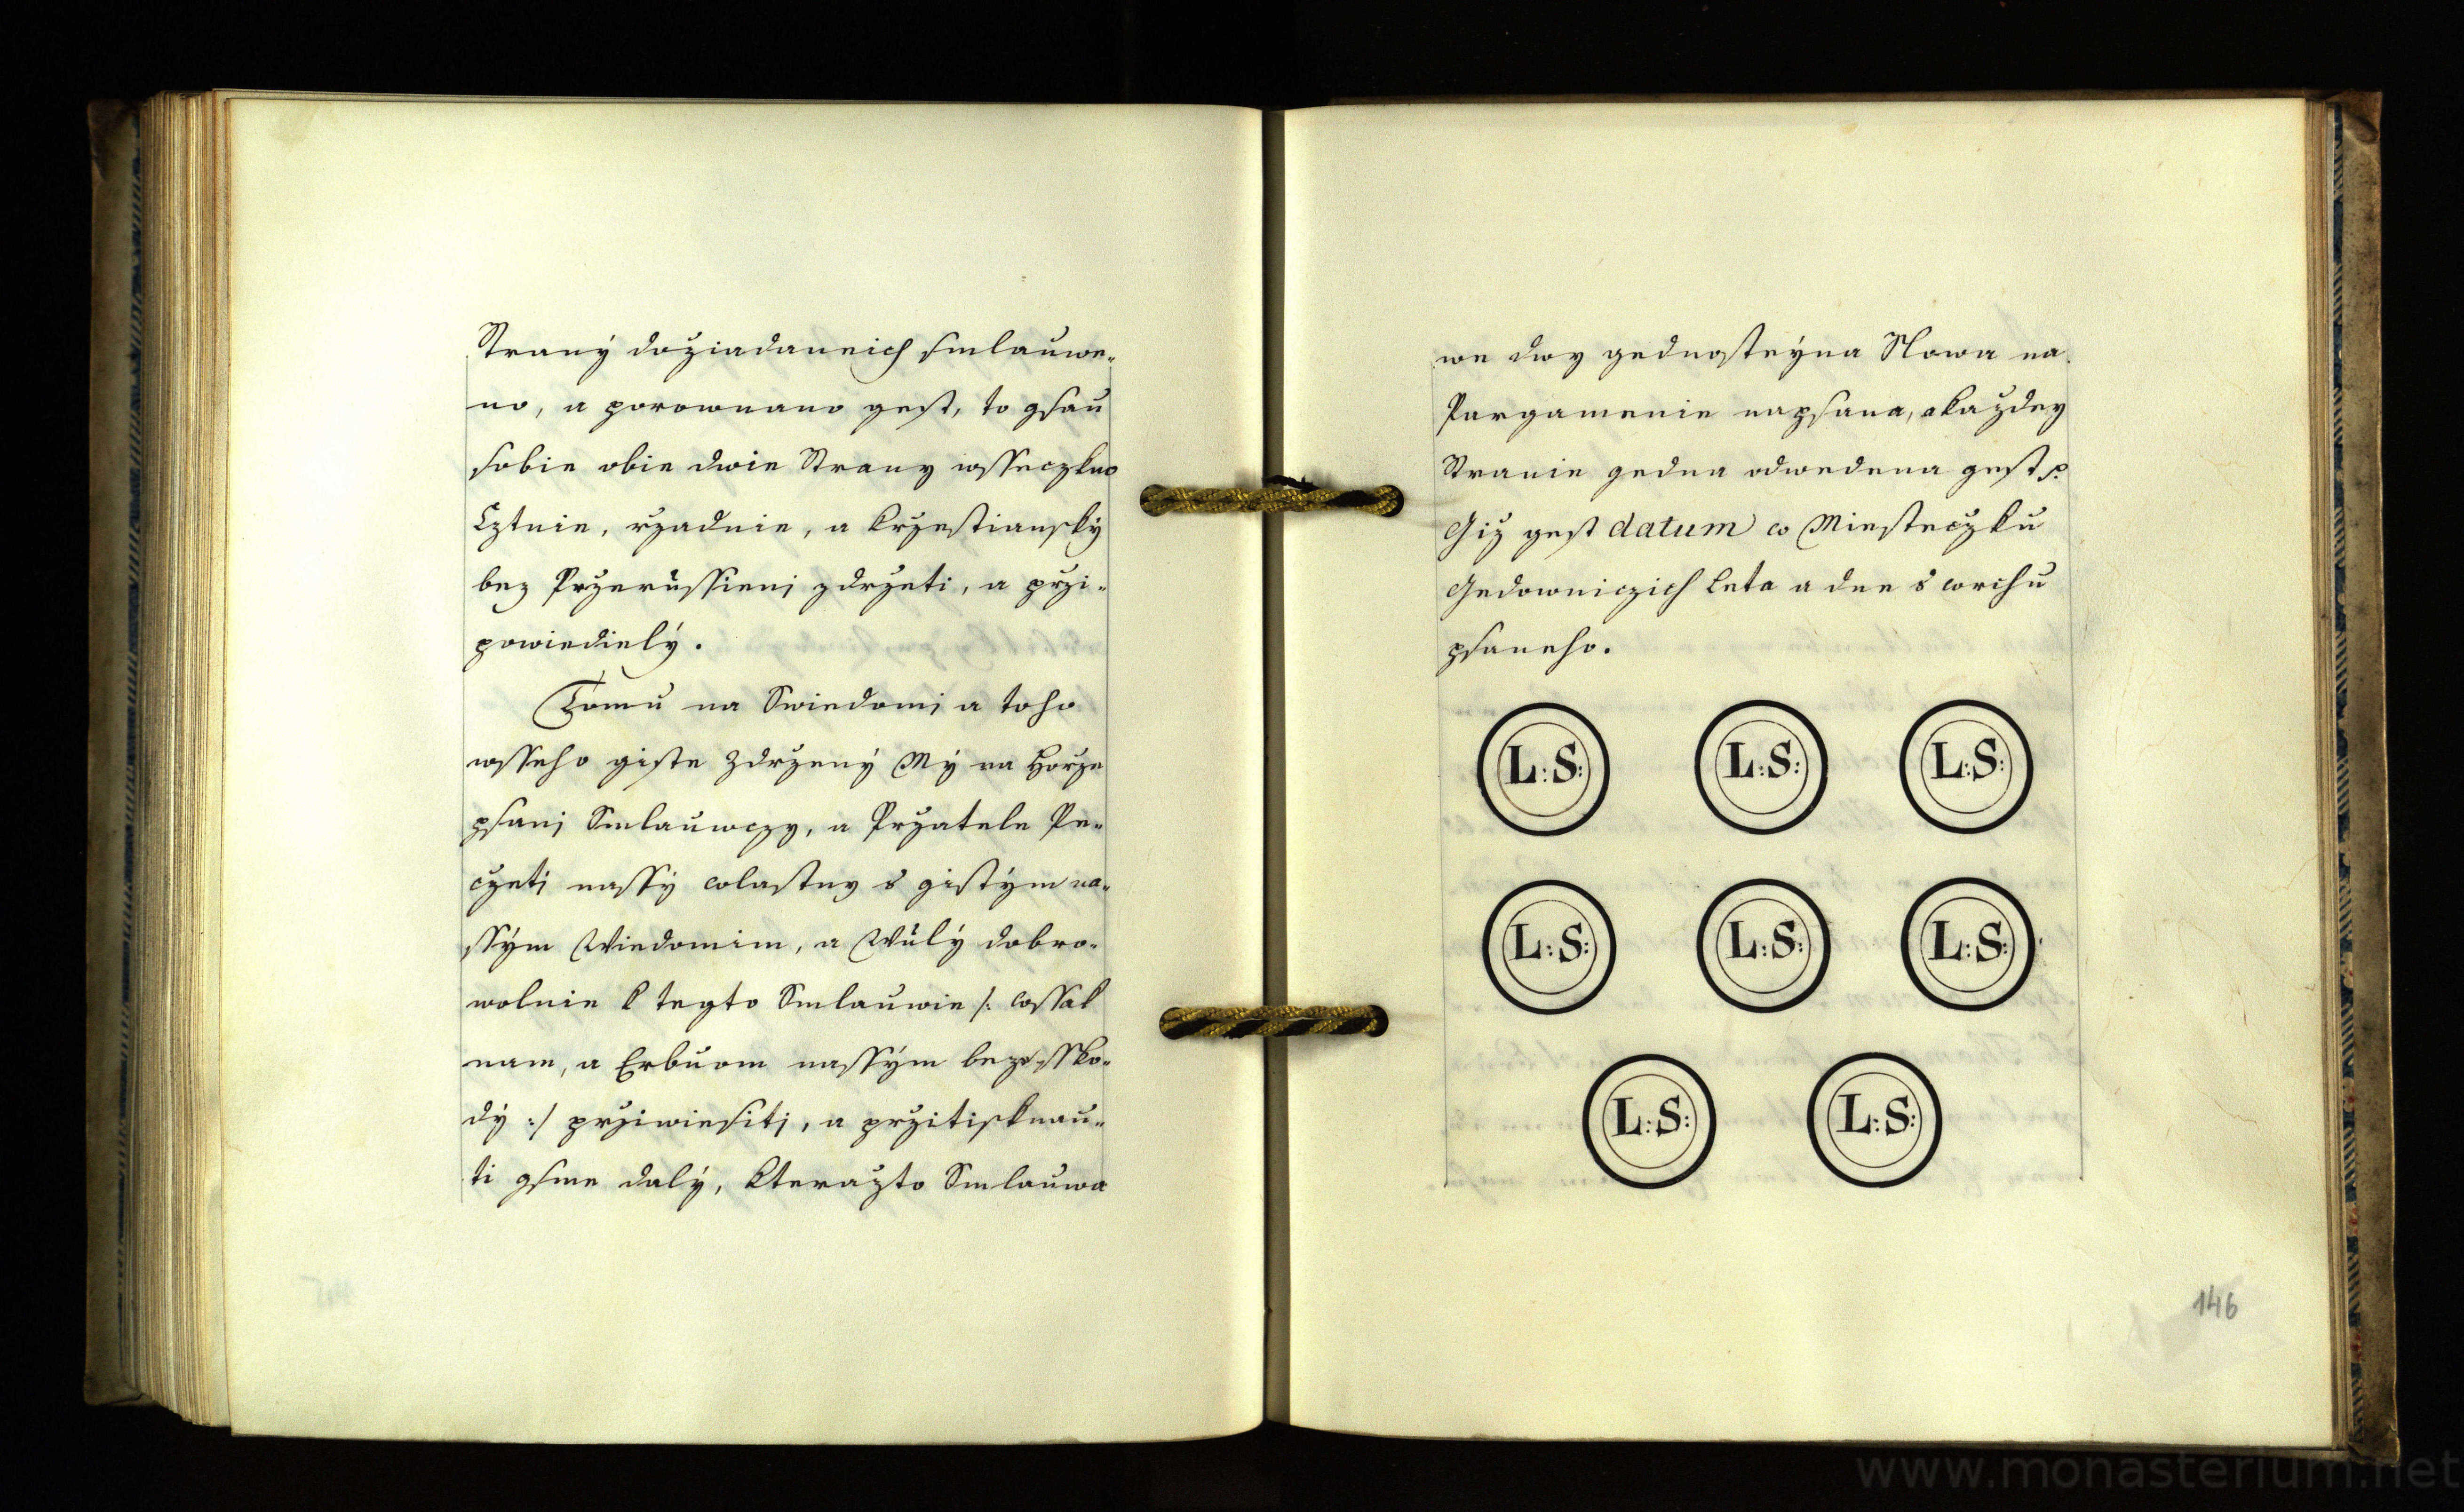 Strany dožiadaneich smlauwe-
no, a porownano gest, to gsau
sobie obie dwie Strany wsseczkno
Cztnie, rzadnie, a krzestiansky
bez Przerússieni zdržeti, a przi-
powiediely.
Tomu na Swiedomi a toho
wsseho giste Zdrženy My na Horze
psani Smlauwczy, a Přzatele Pe-
czeti nassy wlastny s gistým na-
ssým Wiedomim, a Wůlý dobro-
wolnie k tegto Smlauwie /: wssak
nam, a Erbuom nassým bez sko-
dý :/ prziwiesiti, a przitisknau-
ti gsme dalý, kteražto Smlauwa
we dwy gednosteýna Slowa na
Pargamenie napsana, a každey
Stranie gedna odwedena gest
Giž gest datum w Miesteczku
Gedowniczich Leta a dne s wrchu
psaneho.
L:S: L:S: L:S:
L:S: L:S: L:S:
L:S: L:S:
146
www.monasterium.net